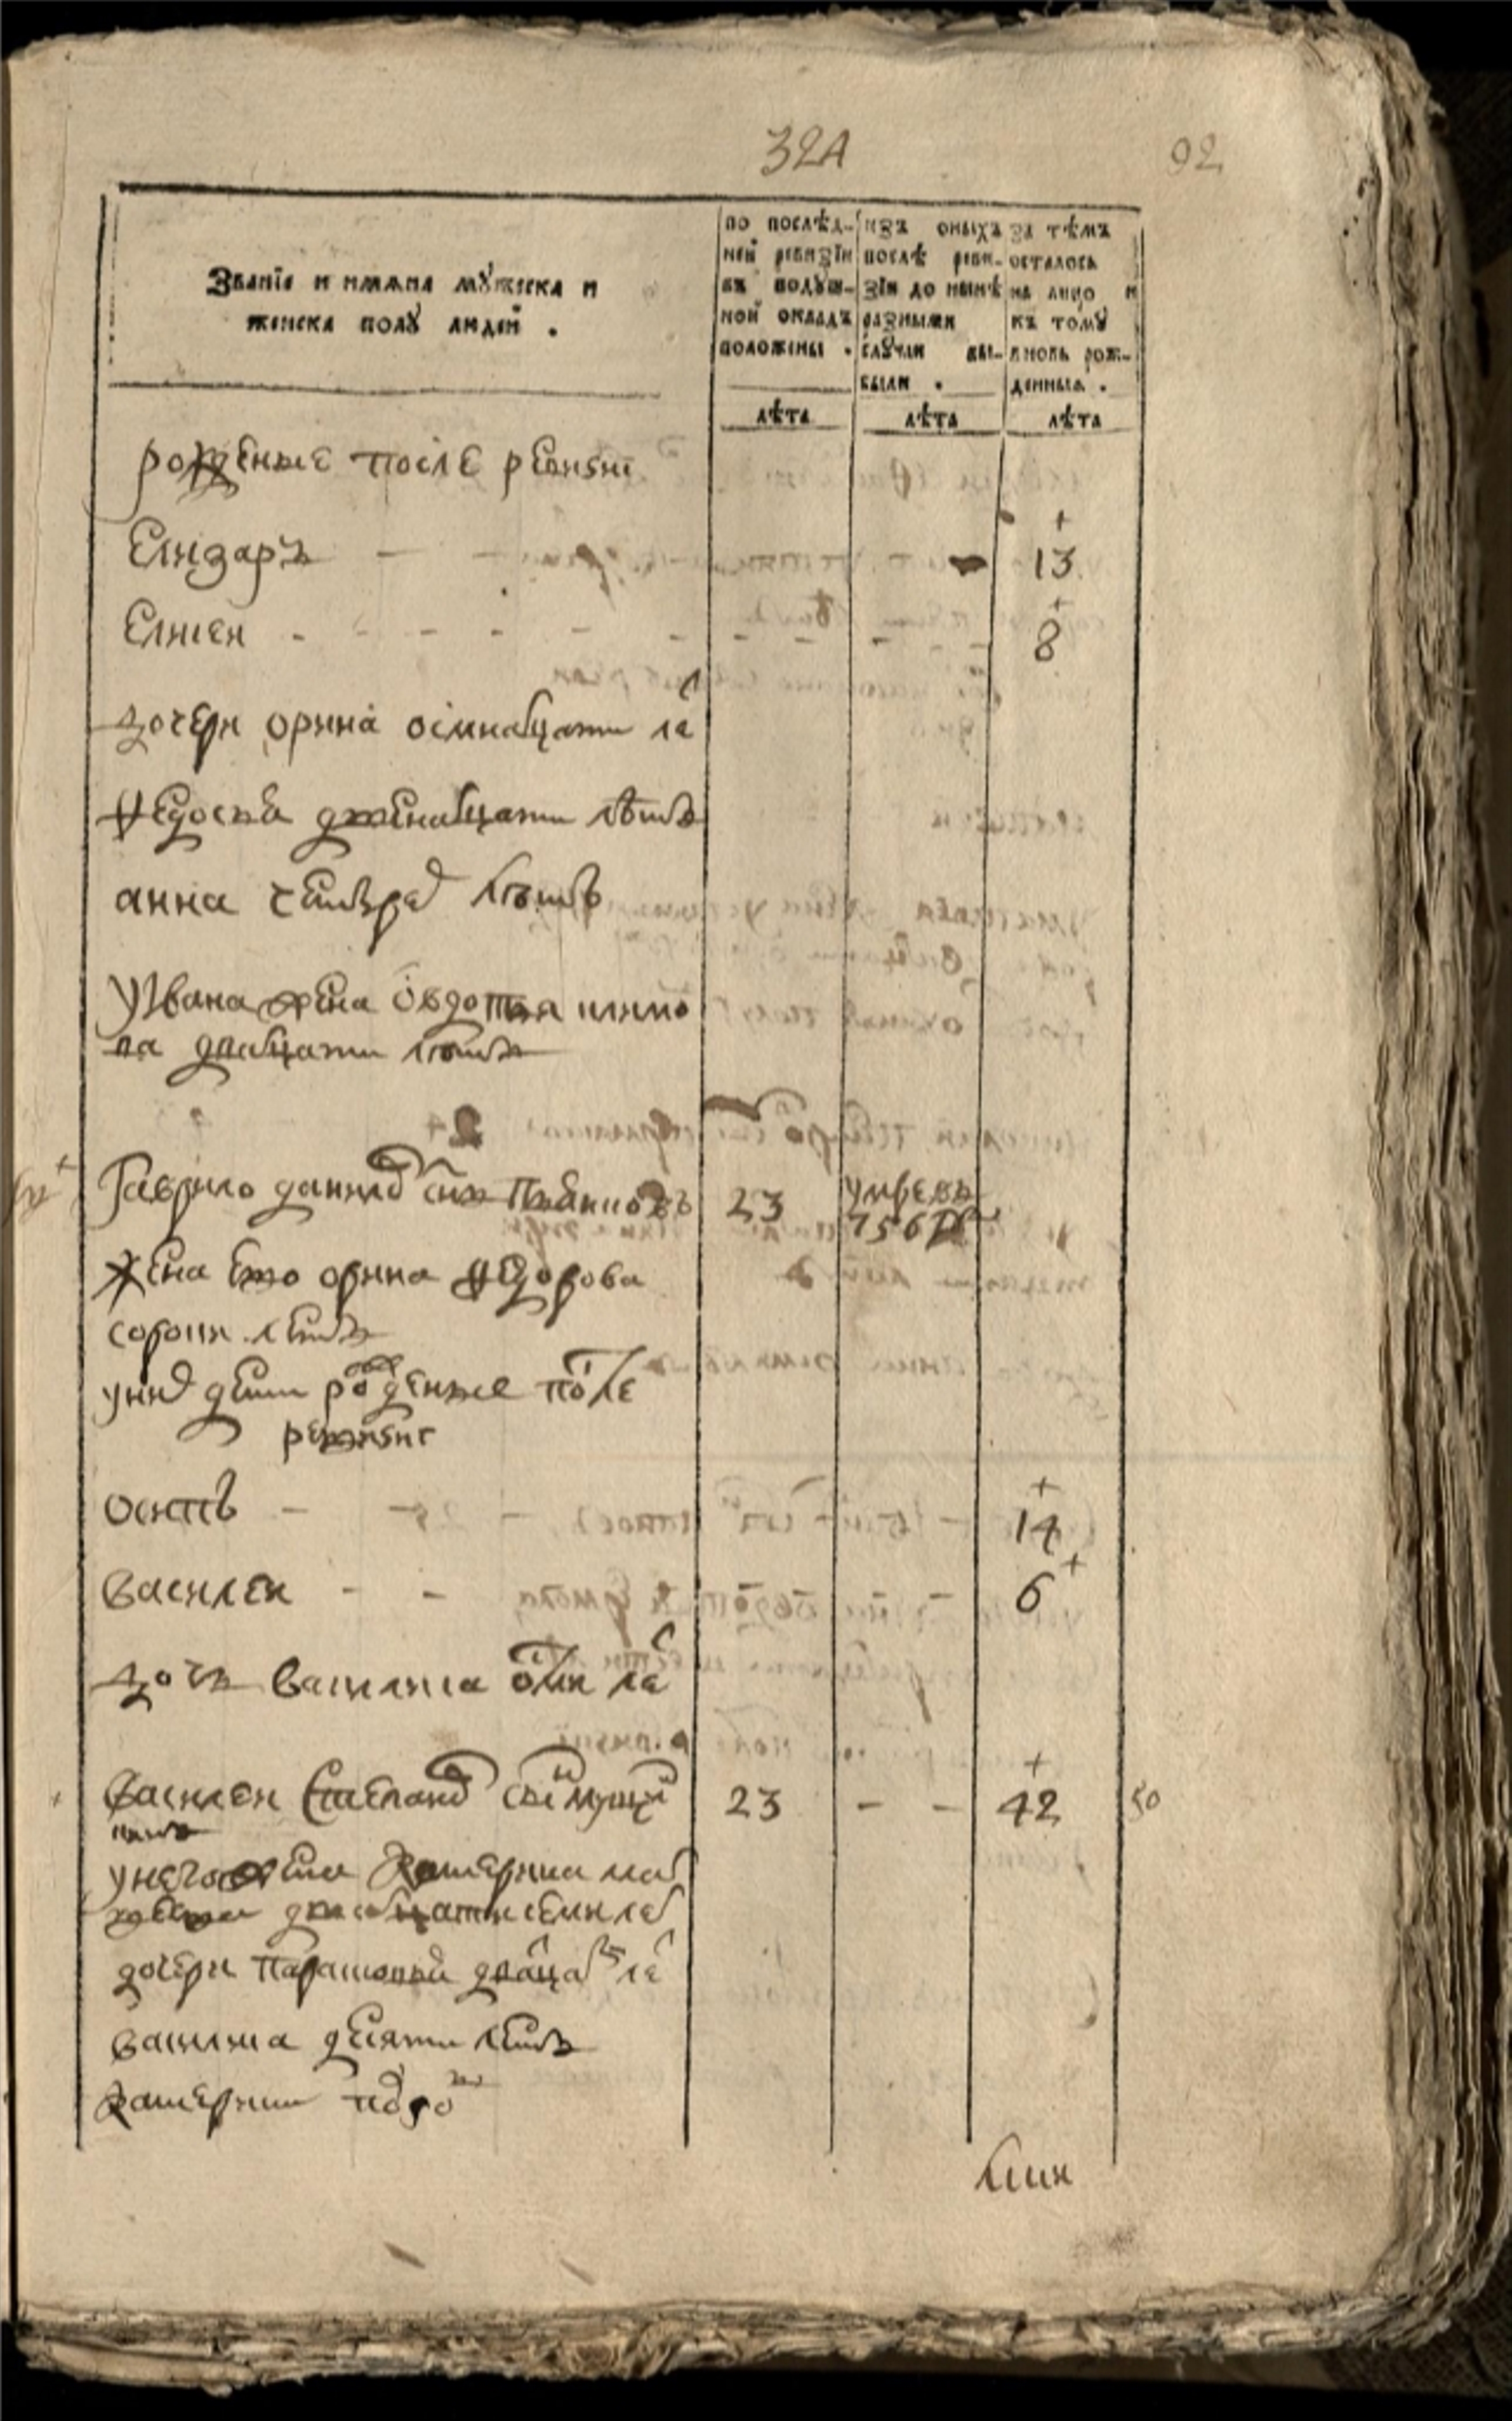 324 92
Званїѧ и имѧна мꙋжеска и
женска полꙋ людей .
по послѣд-
ней ревизїи
въ подꙋш-
ной окладъ
положены .
изъ оныхъ
послѣ реви-
зїи до нынѣ
разными
слꙋчаи вы-
были .
За тѣмъ
осталось
на лицо и
къ томꙋ
вновь рож-
денныѧ .
лѣта лѣта лѣта
рожденые после ревизиї
Елизаръ - - - 13
Елисеи - - - - - - - - - 8
дочери орина осмнатцати ле
Федосья двенатцати лѣтъ
анна четырех лѣтъ
У Ивана жена овдотья
ва дватцати лѣтъ
Гаврило данилов снъ 23 умре въ
756 г
жена ево орина Федорова
сорока летъ
у них дети рожденые после
ревизиї
осипъ - - 14
Василеи - - 6
дочь Василиса осми ле
Василеи Степанов снъ 23 - - 42 50
у него жена Катерина
дватцати семи лет
дочери Парасковья дватцат ле
василиса десяти летъ
Катерина полго